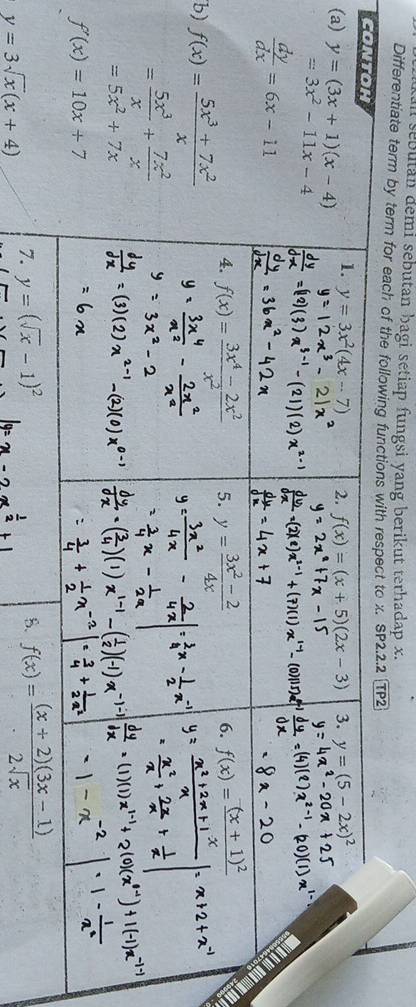 sebutan demi sebutan bagi setiap fungsi yang berikut terhadap x.
Differentiate term by term for each of the following functions with respect to x. SP2.2.2 TP2
CONTOH
(a) y = (3x + 1)(x − 4)
= 3x² − 11x − 4
dy/dx = 6x − 11
b) f(x) = (5x³ + 7x²)/x
= 5x³/x + 7x²/x
= 5x² + 7x
f'(x) = 10x + 7
y = 3√x(x + 4)
1. y = 3x²(4x − 7)
y = 12x³ − 21x²
dy/dx = (12)(3)x³⁻¹ − (21)(2)x²⁻¹
dy/dx = 36x² − 42x
2. f(x) = (x + 5)(2x − 3)
y = 2x² + 7x − 15
dy/dx = (2)(2)x²⁻¹ + (7)(1)x¹⁻¹
dy/dx = 4x + 7
3. y = (5 − 2x)²
y = 4x² − 20x + 25
dy/dx = (4)(2)x²⁻¹ − (20)(1)x¹⁻
= 8x − 20
4. f(x) = (3x⁴ − 2x²)/x²
y = 3x⁴/x² − 2x²/x²
y = 3x² − 2
dy/dx = (3)(2)x²⁻¹ − (2)(0)x⁰⁻¹
= 6x
5. y = (3x² − 2)/4x
y = 3x²/4x − 2/4x = 3/4 x − 1/2 x⁻¹
= 3/4 x − 1/2x
dy/dx = (3/4)(1)x¹⁻¹ − (1/2)(−1)x⁻¹⁻¹
= 3/4 + 1/2 x⁻² = 3/4 + 1/2x²
6. f(x) = (x + 1)²/x
y = (x² + 2x + 1)/x = x + 2 + x⁻¹
= x²/x + 2x/x + 1/x
dy/dx = (1)(1)x¹⁻¹ + 2(0)(x⁰⁻¹) + 1(−1)x⁻¹⁻¹
= 1 − x⁻² = 1 − 1/x²
7. y = (√x − 1)²
y = x − 2x^½ + 1
8. f(x) = (x + 2)(3x − 1)/2√x